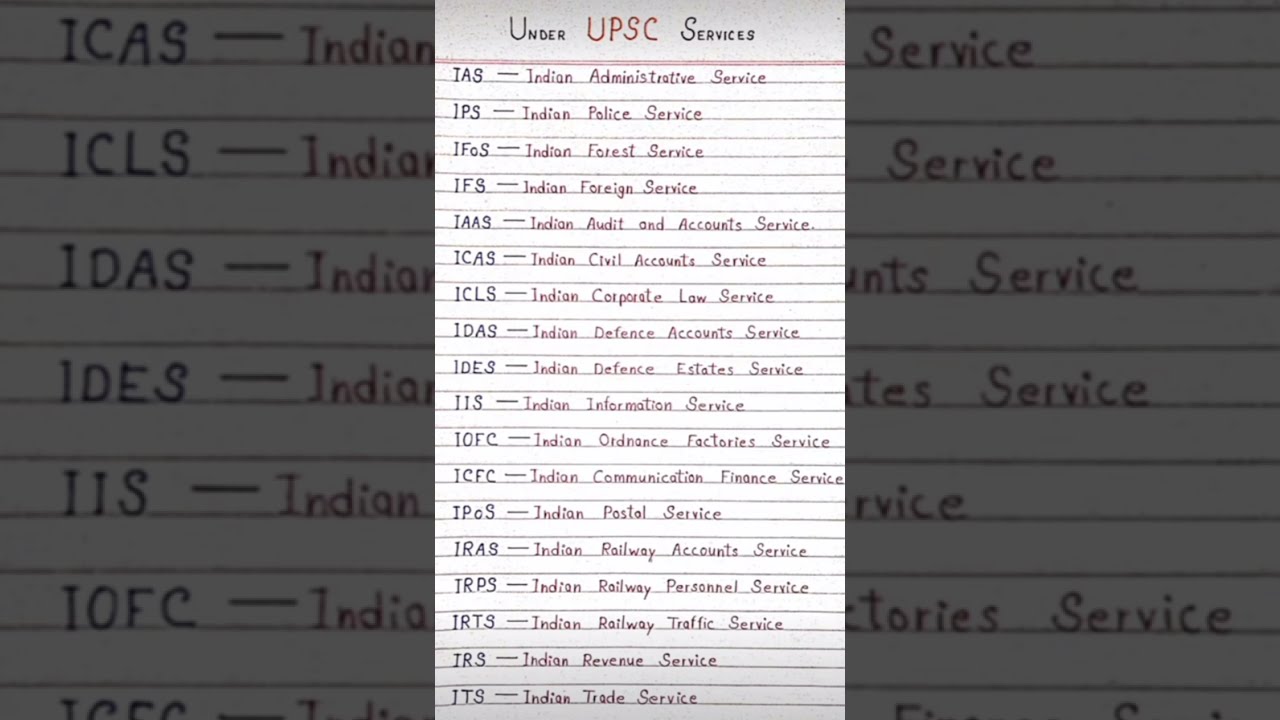 UNDER UPSC SERVICES
IAS — Indian Administrative Service
IPS — Indian Police Service
IFoS — Indian Forest Service
IFS — Indian Foreign Service
IAAS — Indian Audit and Accounts Service.
ICAS — Indian Civil Accounts Service
ICLS — Indian Corporate Law Service
IDAS — Indian Defence Accounts Service
IDES — Indian Defence Estates Service
IIS — Indian Information Service
IOFC — Indian Ordnance Factories Service
ICFC — Indian Communication Finance Service
IPoS — Indian Postal Service
IRAS — Indian Railway Accounts Service
IRPS — Indian Railway Personnel Service
IRTS — Indian Railway Traffic Service
IRS — Indian Revenue Service
ITS — Indian Trade Service